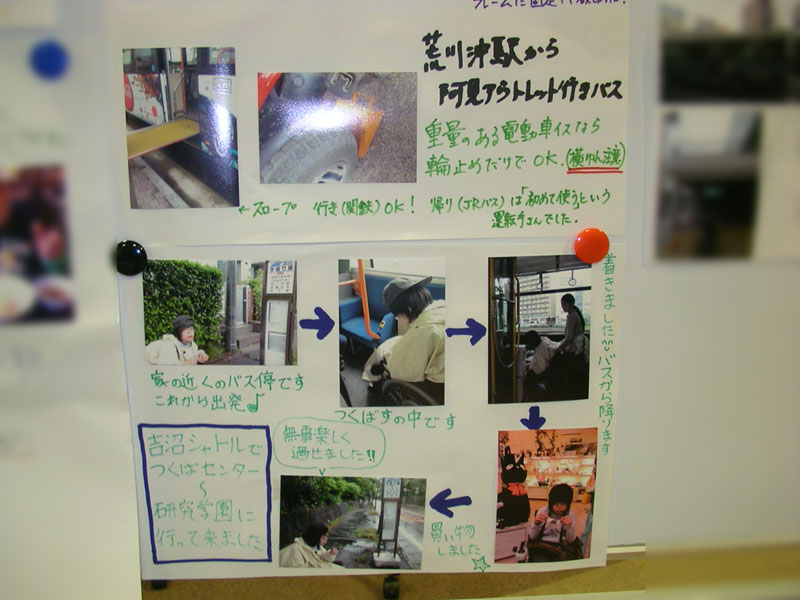 フレームに固定
荒川沖駅から
阿見アウトレット行きバス
重量のある電動車イスなら
輪止めだけでOK.(横ゆれ注意)
←スロープ 行き(関鉄)OK! 帰り(JRバス)は「初めて使うという
運転手さんでした.
家の近くのバス停です
これから出発♪
つくばすの中です
着きました バスから降ります
買い物
しました☆
無事楽しく
過せました!!
吉沼シャトルで
つくばセンター
〜
研究学園に
行って来ました